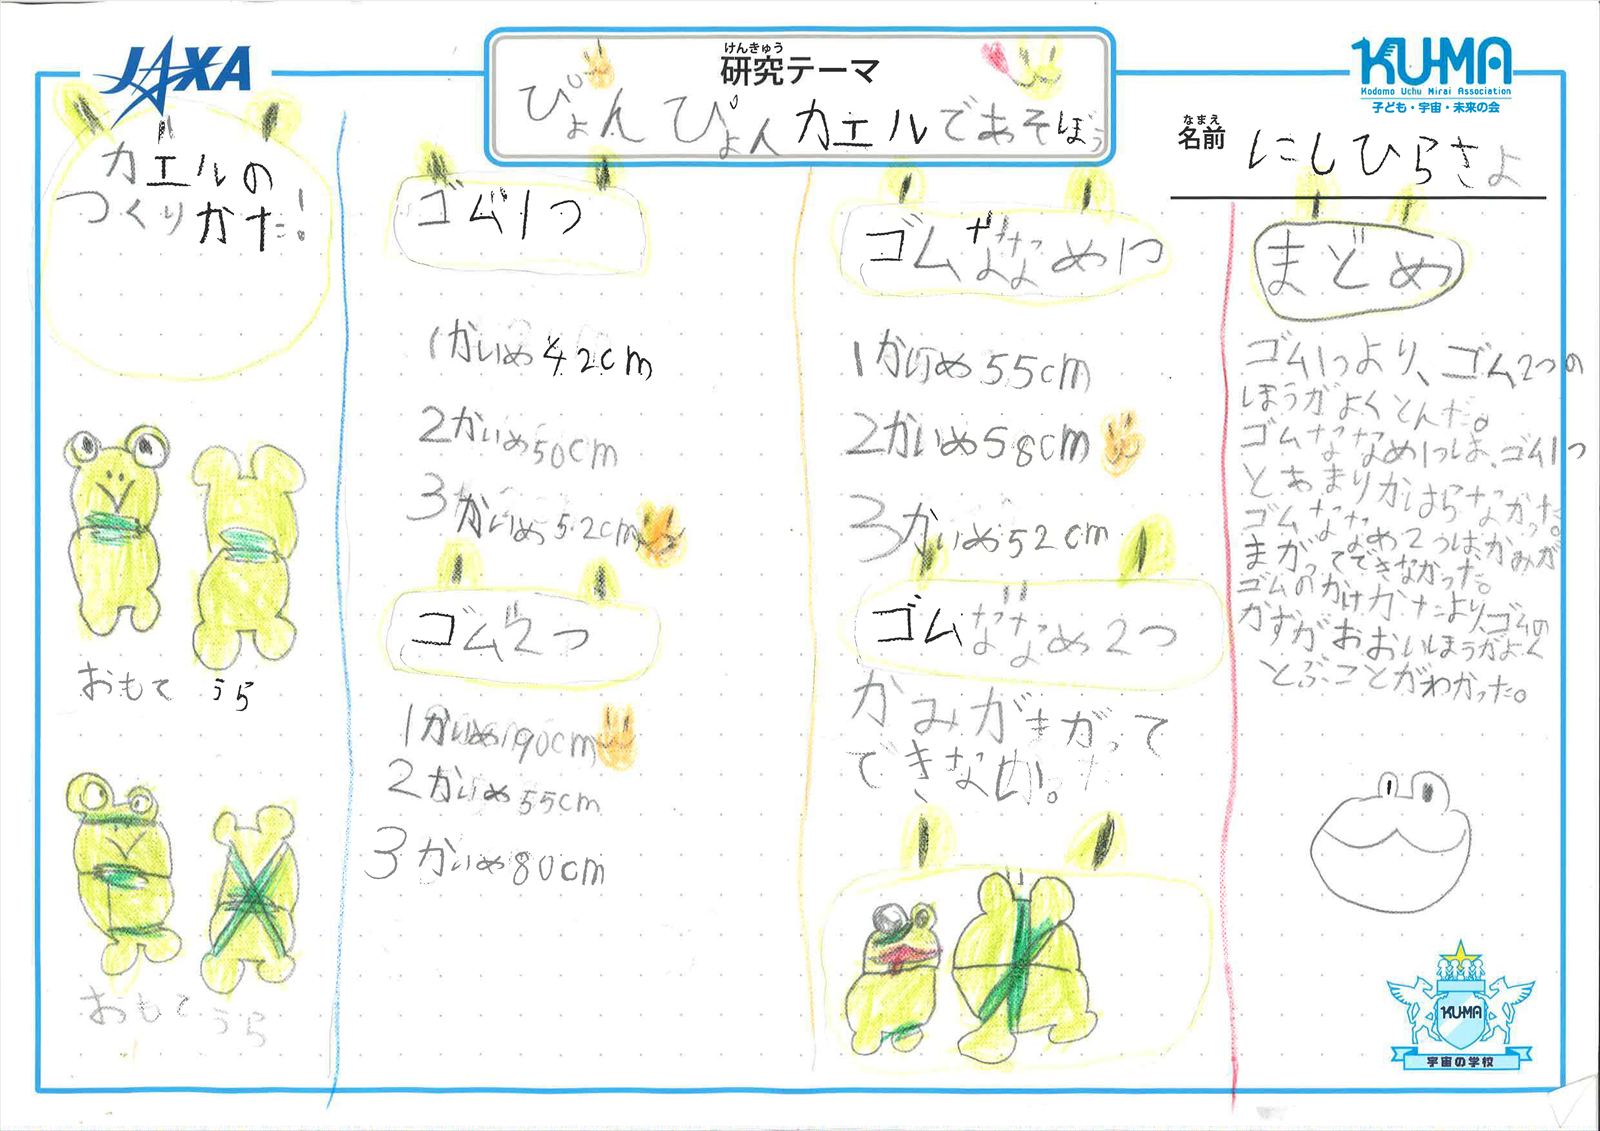 JAXA
けんきゅう
研究テーマ
ぴょんぴょんカエルであそぼう
KU-MA
Kodomo Uchu Mirai Association
子ども・宇宙・未来の会
なまえ
名前
にしひらさよ
カエルの
つくりかた!
おもて うら
おもて うら
ゴム1つ
1かいめ42cm
2かいめ50cm
3かいめ52cm
ゴム2つ
1かいめ190cm
2かいめ55cm
3かいめ80cm
ゴムななめ1つ
1かいめ55cm
2かいめ58cm
3かいめ52cm
ゴムななめ2つ
かみがまがって
できない。
まとめ
ゴム1つより、ゴム2つの
ほうがよくとんだ。
ゴムななめ1つは、ゴム1つ
とあまりかはらなかった。
ゴムななめ2つは、かみが
まがってできなかった。
ゴムのかけかたより、ゴムの
かずがおおいほうがよく
とぶことがわかった。
KU-MA
宇宙の学校